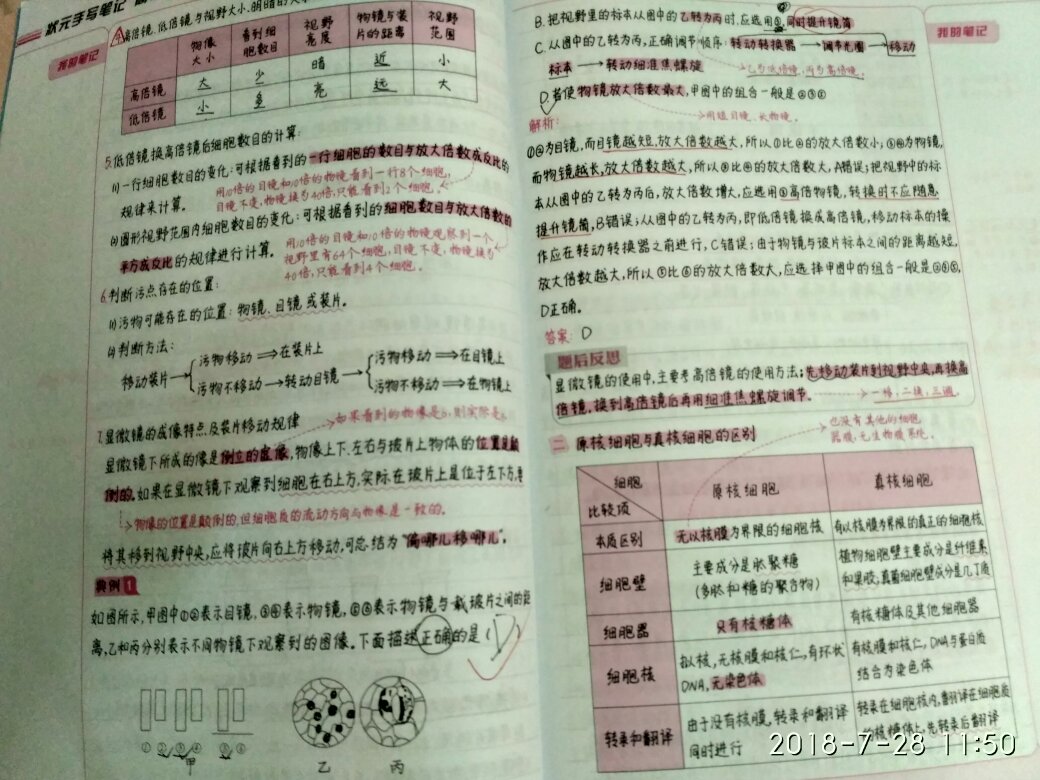 状元手写笔记
我的笔记
高倍镜、低倍镜与视野大小、明暗的关
物像大小 看到细胞数目 视野亮度 物镜与装片的距离 视野范围
高倍镜 大 少 暗 近 小
低倍镜 小 多 亮 远 大
5.低倍镜换高倍镜后细胞数目的计算:
(1)一行细胞数目的变化:可根据看到的一行细胞的数目与放大倍数成反比的
用10倍的目镜和10倍的物镜看到一行8个细胞,
规律来计算。
目镜不变,物镜换为40倍,只能看到2个细胞。
(2)圆形视野范围内细胞数目的变化:可根据看到的细胞数目与放大倍数的
平方成反比的规律进行计算。
用10倍的目镜和10倍的物镜观察到一个
视野里有64个细胞,目镜不变,物镜换为
40倍,只能看到4个细胞。
6.判断污点存在的位置:
(1)污物可能存在的位置:物镜、目镜或装片。
(2)判断方法:
移动装片→
污物移动⇒在装片上
污物不移动→转动目镜→
污物移动⇒在目镜上
污物不移动⇒在物镜上
7.显微镜的成像特点及装片移动规律
如果看到的物像是b,则实际是
显微镜下所成的像是倒立的虚像,物像上下、左右与玻片上物体的位置是颠
倒的。如果在显微镜下观察到细胞在右上方,实际在玻片上是位于左下方,要
物像的位置是颠倒的,但细胞质的流动方向与物像是一致的。
将其移到视野中央,应将玻片向右上方移动,可总结为“偏哪儿移哪儿”。
典例1
如图所示,甲图中①②表示目镜,③④表示物镜,⑤⑥表示物镜与载玻片之间的距
离,乙和丙分别表示不同物镜下观察到的图像。下面描述正确的是( D )
① ② ③ ④ ⑤ ⑥
甲
乙
丙
我的笔记
B.把视野里的标本从图中的乙转为丙时,应选用③,同时提升镜筒
C.从图中的乙转为丙,正确调节顺序:转动转换器→调节光圈→移动
标本→转动细准焦螺旋
乙为低倍镜,丙为高倍镜。
D.若使物镜放大倍数最大,甲图中的组合一般是②③⑤
用短目镜、长物镜。
解析:
①②为目镜,而目镜越短,放大倍数越大,所以①比②的放大倍数小;③④为物镜,
而物镜越长,放大倍数越大,所以③比④的放大倍数大,A错误;把视野中的标
本从图中的乙转为丙后,放大倍数增大,应选用③高倍物镜,转换时不应随意
提升镜筒,B错误;从图中的乙转为丙,即低倍镜换成高倍镜,移动标本的操
作应在转动转换器之前进行,C错误;由于物镜与玻片标本之间的距离越短,
放大倍数越大,所以⑤比⑥的放大倍数大,应选择甲图中的组合一般是②③⑤,
D正确。
答案: D
题后反思
显微镜的使用中,主要考高倍镜的使用方法:先移动装片到视野中央,再换高
倍镜,换到高倍镜后再用细准焦螺旋调节。
一移;二换;三调。
二 原核细胞与真核细胞的区别
也没有其他的细胞
器膜,无生物膜系统。
细胞
比较项
原核细胞 真核细胞
本质区别 无以核膜为界限的细胞核 有以核膜为界限的真正的细胞核
细胞壁 主要成分是肽聚糖 植物细胞壁主要成分是纤维素
(多肽和糖的聚合物) 和果胶,真菌细胞壁成分是几丁质
细胞器 只有核糖体 有核糖体及其他细胞器
细胞核 拟核,无核膜和核仁,有环状 有核膜和核仁,DNA与蛋白质
DNA,无染色体 结合为染色体
转录和翻译 由于没有核膜,转录和翻译 转录在细胞核内,翻译在细胞质
同时进行 的核糖体上,先转录后翻译
2018-7-28 11:50